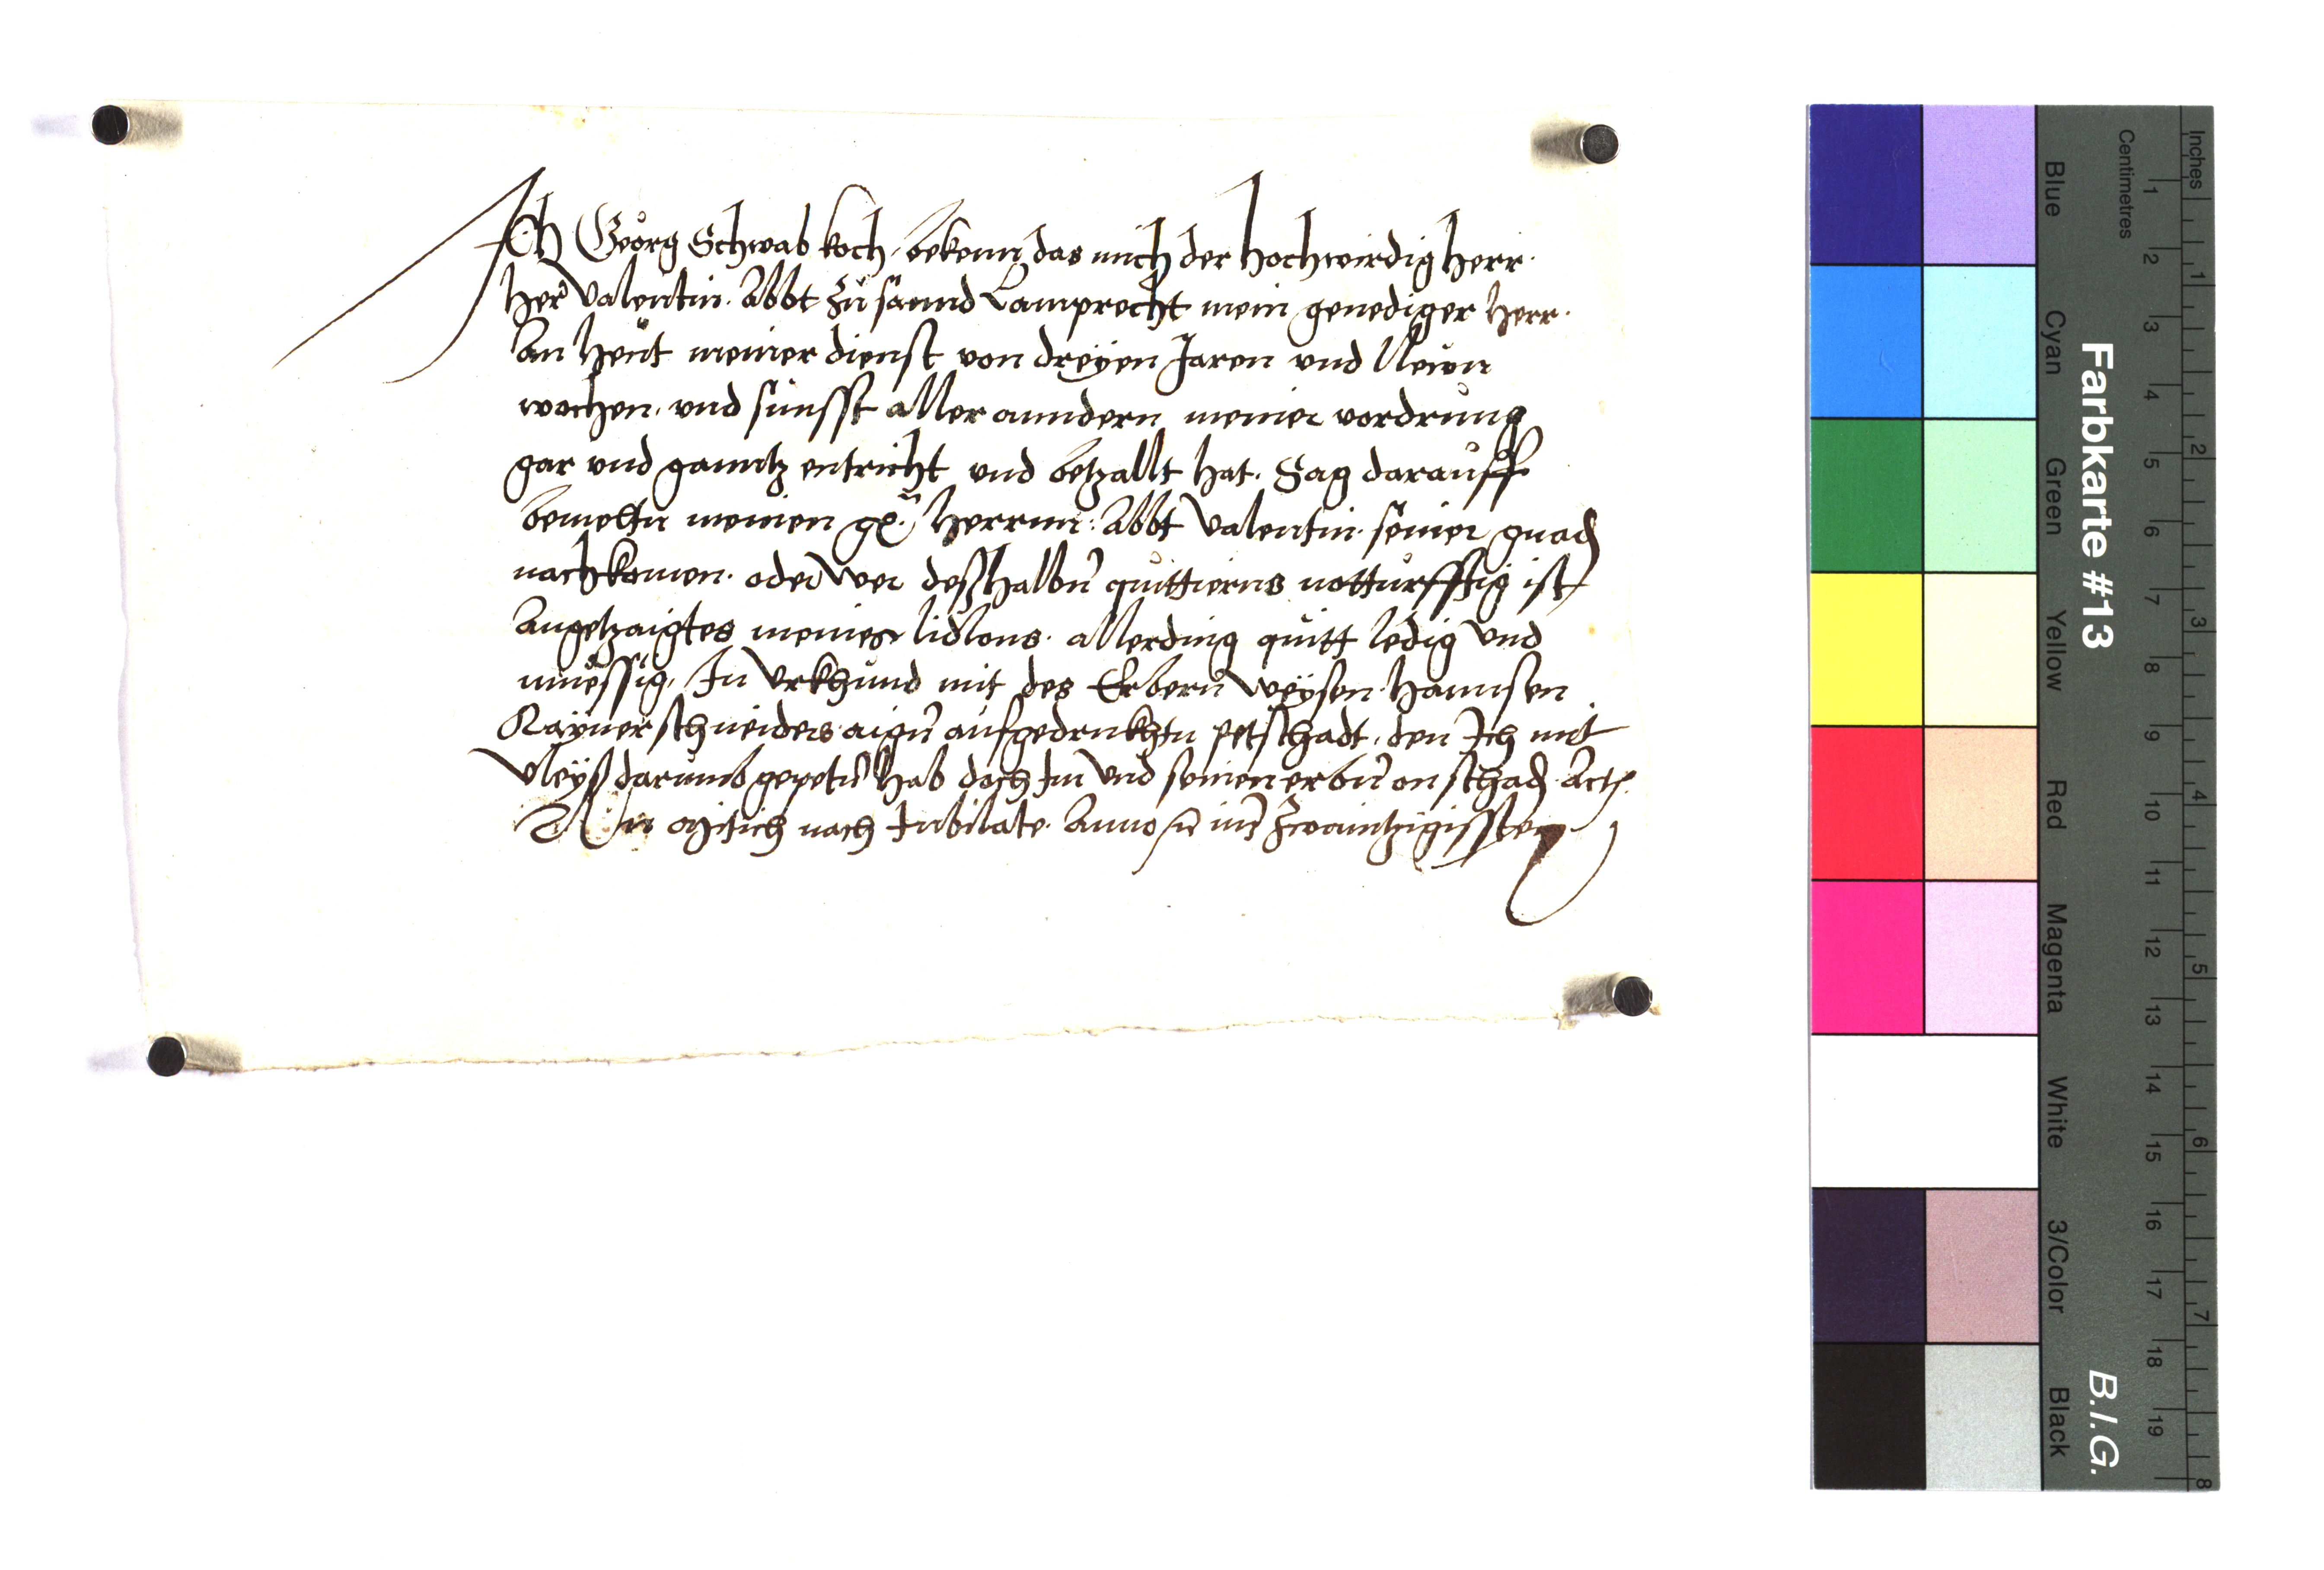 Ich Georg Schwab koch, bekenn das mich der Hochwirdig Herr.
Her Valentin. Abbt zu sannd Lamprecht mein genediger Herr.
An Heut meiner dienst von dreyen Jaren und Newn
wochen. und sunsst aller anndern meiner vordrung
gar und ganntz entricht und betzallt hat. Sag darauff
bemeltn meinen Herrnn: Abbt Valentin. seiner gnad
nachkomen. oder wer desshalbn quittierns notturfftig ist
Angetzaigtes meines lidlons. allerding quitt ledig und
muessig. In Urkhund mit des Erbern weysen. Hannsen
Kayner schneiders aign aufgedrukhtn petschadt. den Ich mit
vleyss darumb gepetn hab doch Im und seinen erbn on schad. Act.
Am nach Jubilate. Anno im zwaintzigissten
Farbkarte #13
B.I.G.
Blue
Cyan
Green
Yellow
Red
Magenta
White
3/Color
Black
Centimetres
1 2 3 4 5 6 7 8 9 10 11 12 13 14 15 16 17 18 19
Inches
1 2 3 4 5 6 7 8